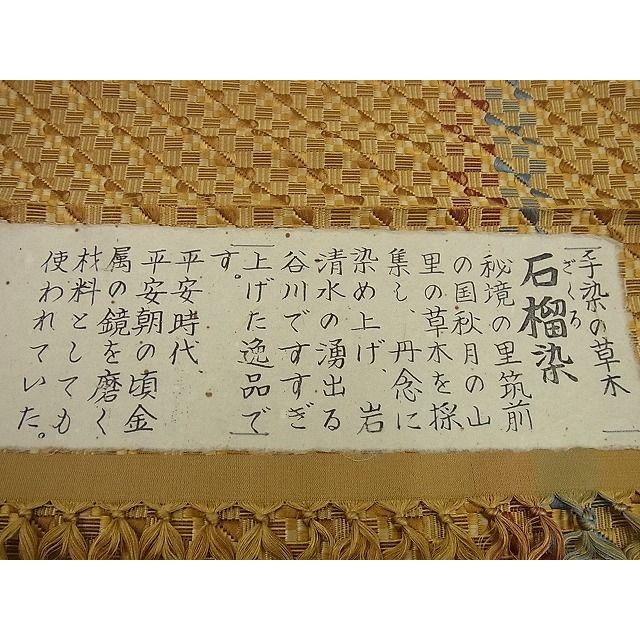 手染の草木
ざくろ
石榴染
秘境の里筑前
の国秋月の山
里の草木を採
集し、丹念に
染め上げ、岩
清水の湧出る
谷川ですすぎ
上げた逸品で
す。
平安時代
平安朝の頃金
属の鏡を磨く
材料としても
使われていた。